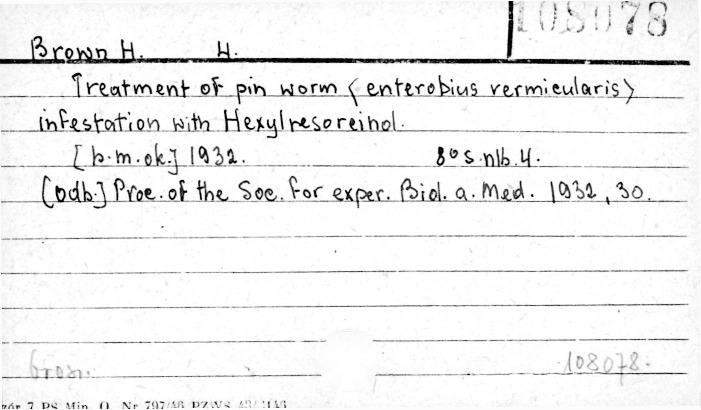 108078
Brown H. H.
Treatment of pin worm <enterobius vermicularis>
infestation with Hexylresoreinol.
[b.m.ok.] 1932. 8° s. nlb. 4.
[odb.] Proc. of the Soc. for exper. Biol. a. Med. 1932, 30.
brosz.
108078.
zór 7 PS Min. O. Nr 797/46 PZWS